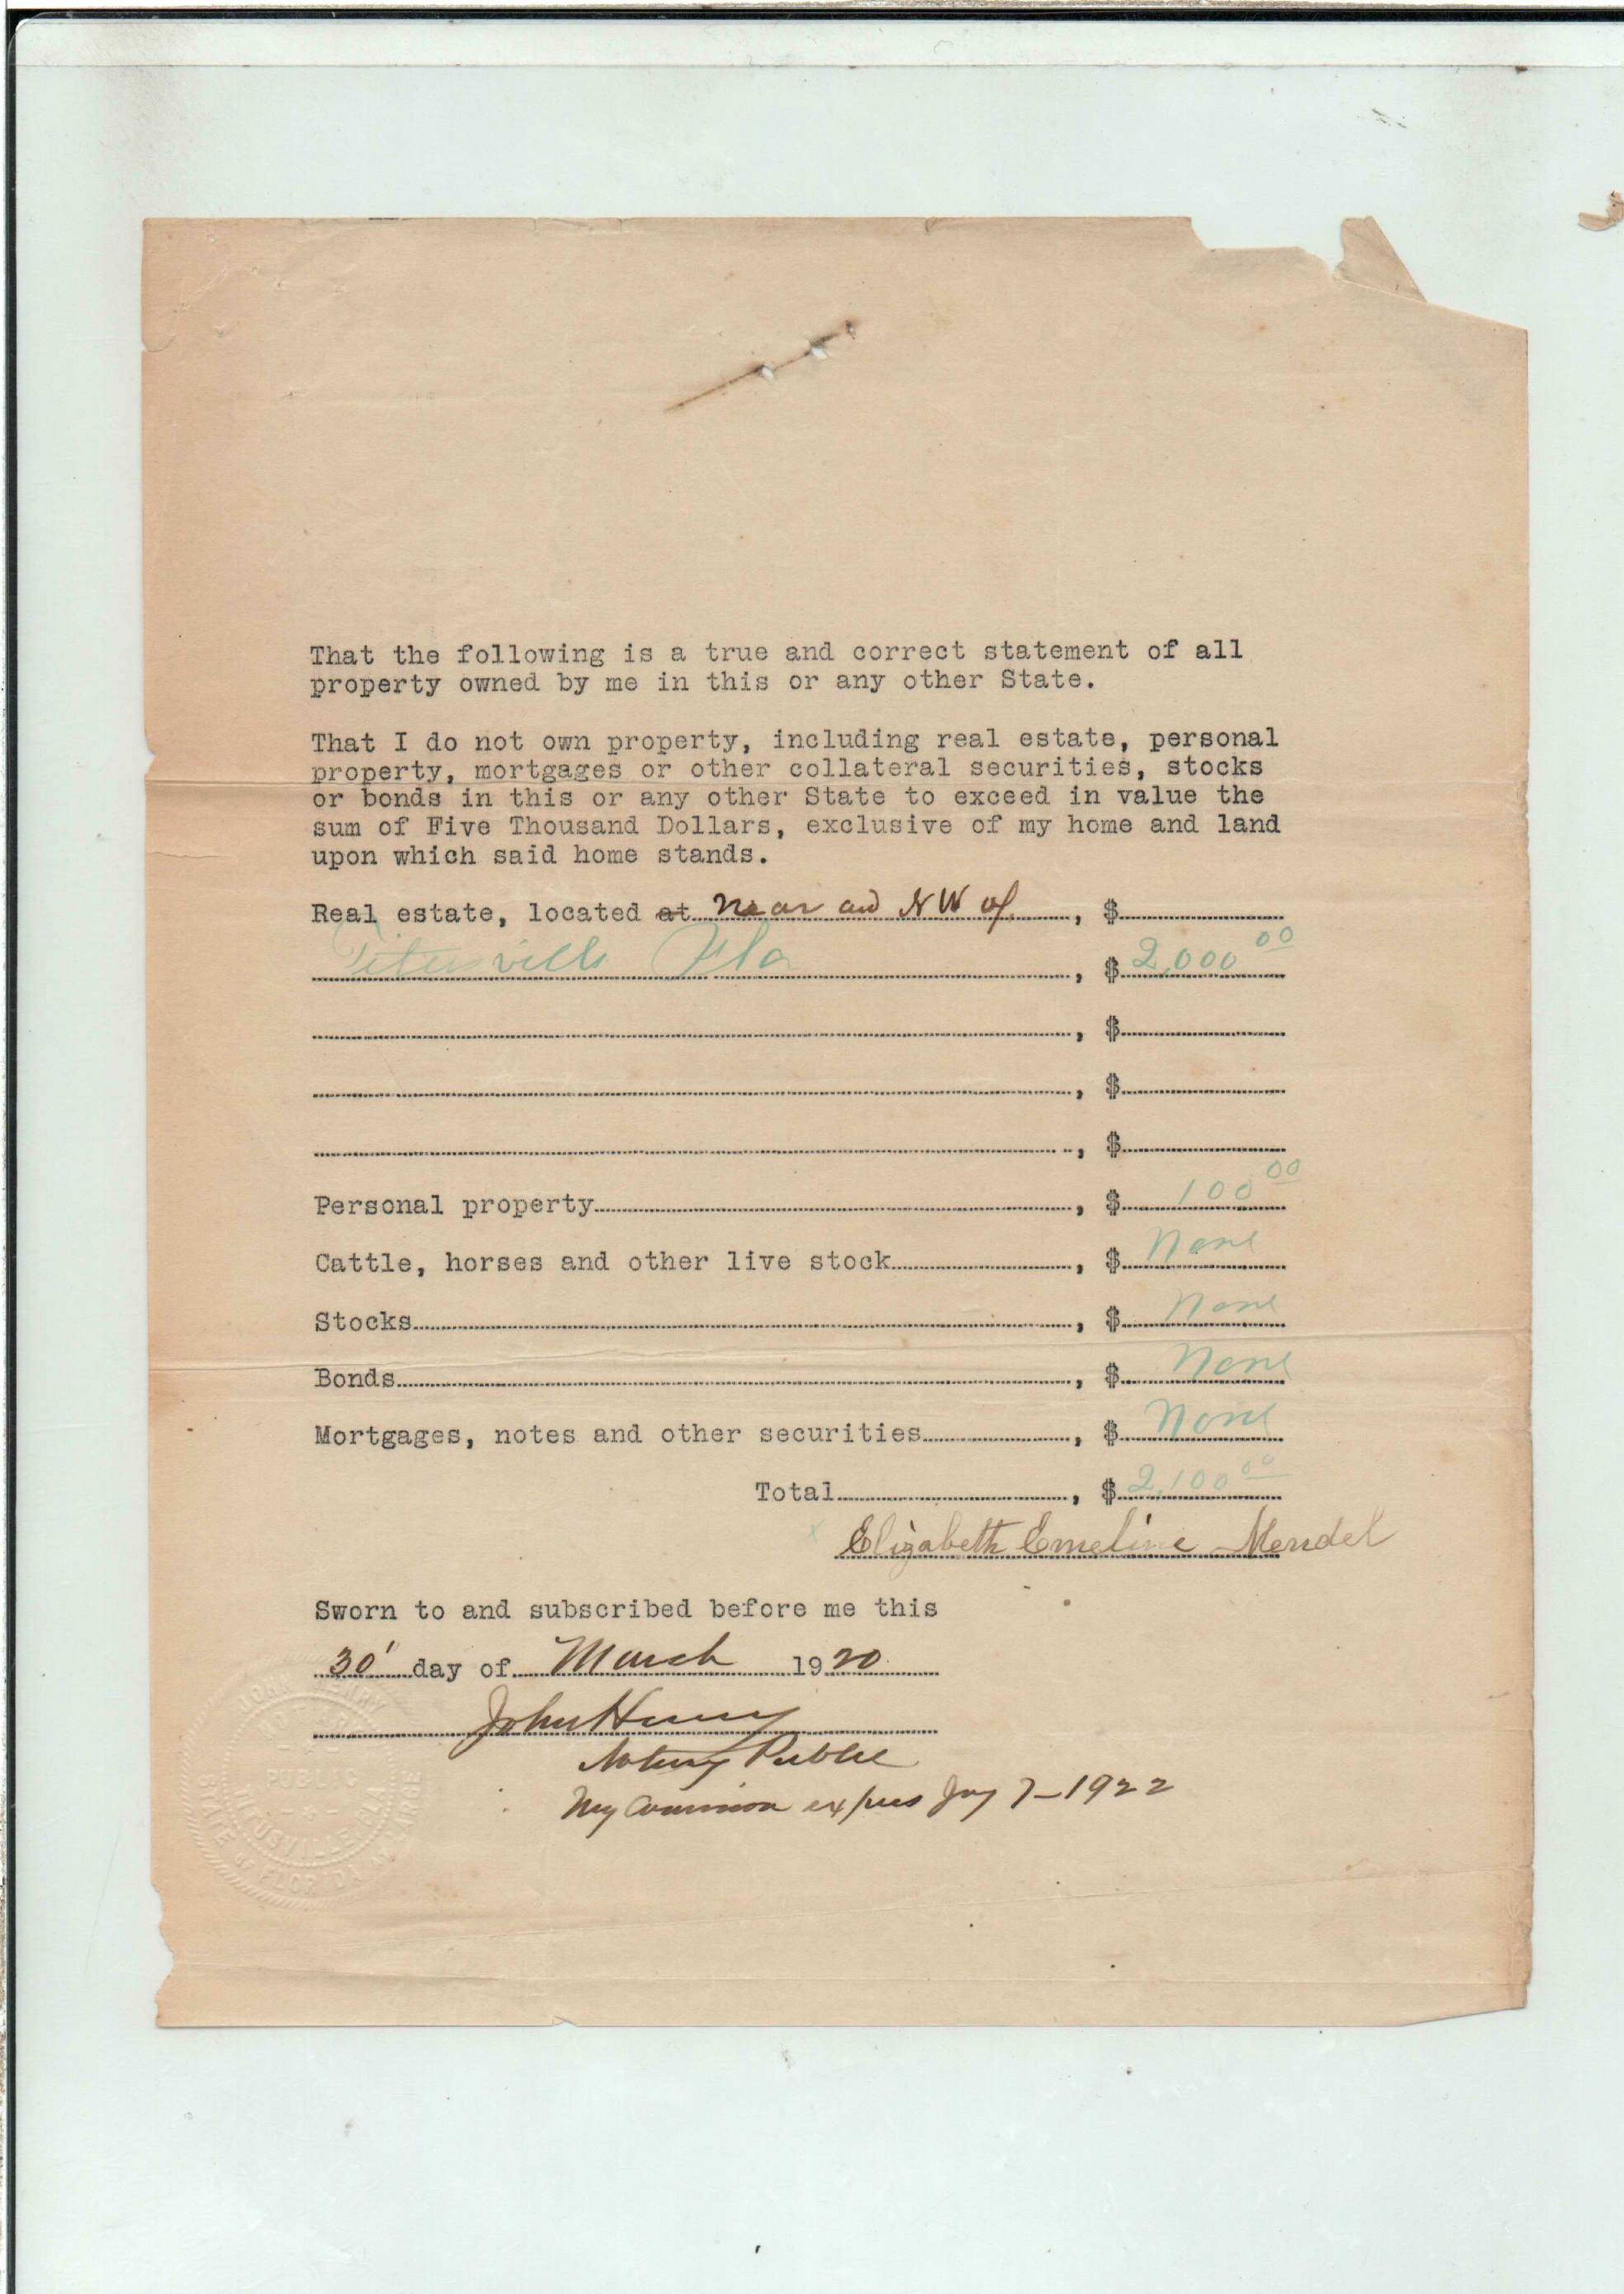 That the following is a true and correct statement of all
property owned by me in this or any other State.
That I do not own property, including real estate, personal
property, mortgages or other collateral securities, stocks
or bonds in this or any other State to exceed in value the
sum of Five Thousand Dollars, exclusive of my home and land
upon which said home stands.
Real estate, located at near and NW of, $
Titusville Fla, $ 2,000 00
, $
, $
, $
Personal property, $ 100 00
Cattle, horses and other live stock, $ None
Stocks, $ None
Bonds, $ None
Mortgages, notes and other securities, $ None
Total, $ 2,100 00
x Elizabeth Emeline Mendel
Sworn to and subscribed before me this
30' day of March 1920
John Henry
Notary Public
My Commission expires Jany 7-1922
JOHN HENRY
PUBLIC
TITUSVILLE, FLA.
STATE OF FLORIDA AT LARGE